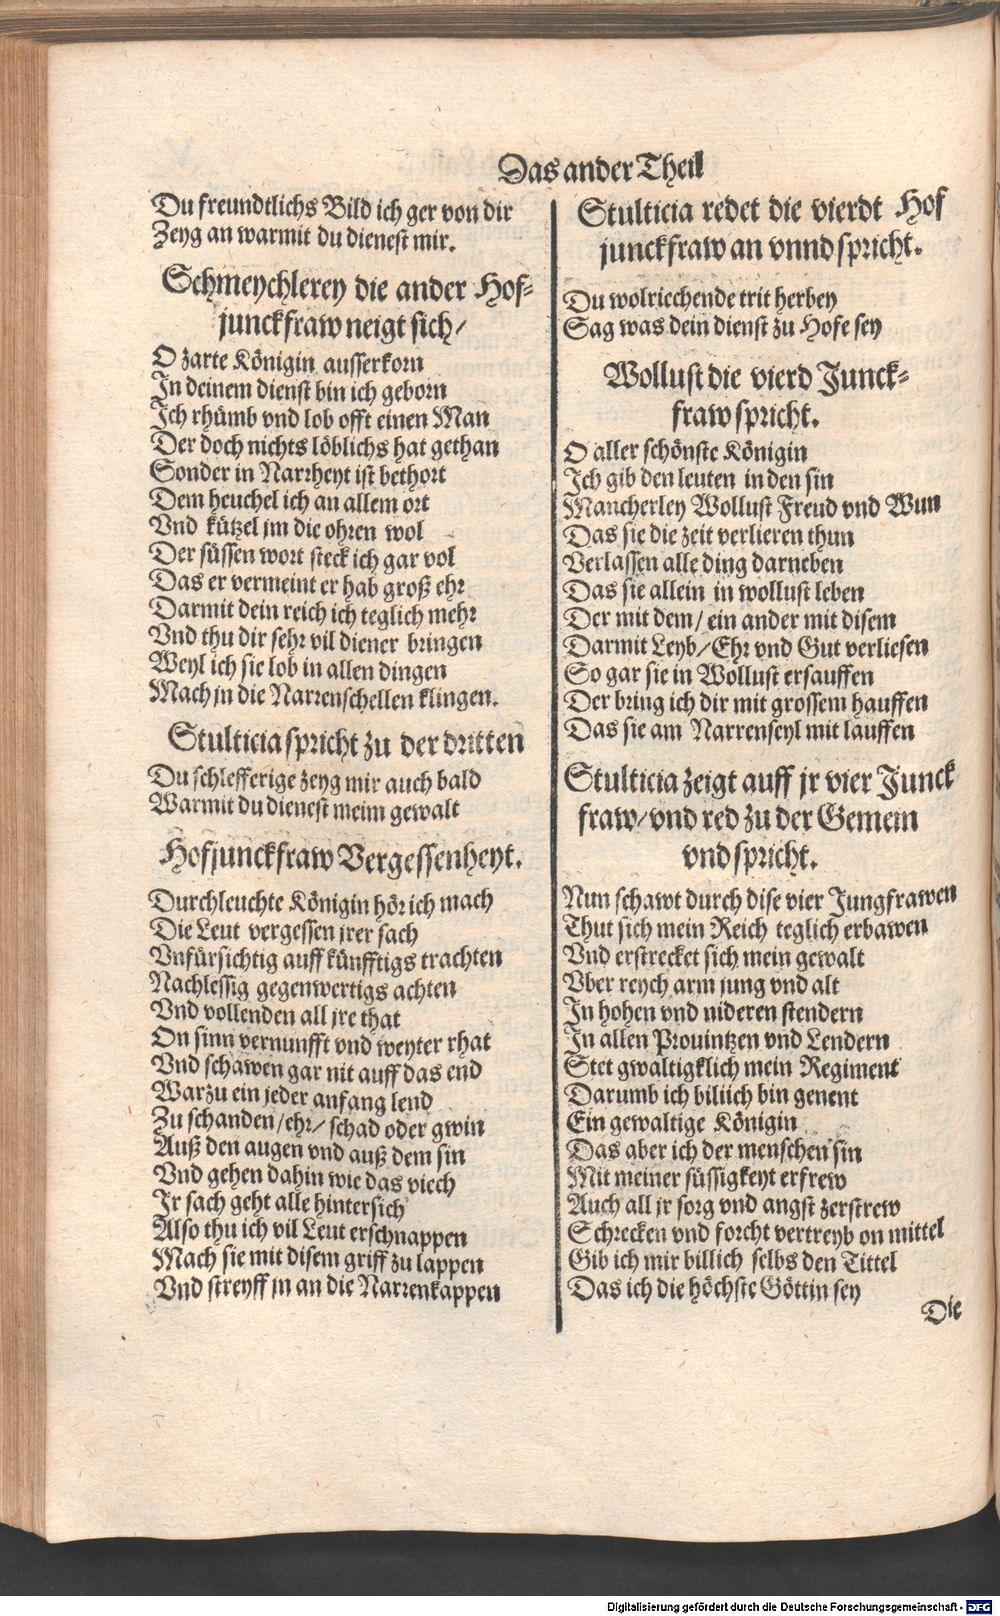 Das ander Theil
Du freundtlichs Bild ich ger von dir
Zeyg an warmit du dienest mir.
Schmeychlerey die ander Hof-
junckfraw neigt sich/
O zarte Königin ausserkorn
In deinem dienst bin ich geborn
Ich rhümb vnd lob offt einen Man
Der doch nichts löblichs hat gethan
Sonder in Narrheyt ist bethort
Dem heuchel ich an allem ort
Vnd kützel jm die ohren wol
Der süssen wort steck ich gar vol
Das er vermeint er hab groß ehr
Darmit dein reich ich teglich mehr
Vnd thu dir sehr vil diener bringen
Weyl ich sie lob in allen dingen
Mach jn die Narrenschellen klingen.
Stulticia spricht zu der dritten
Du schlefferige zeyg mir auch bald
Warmit du dienest meim gewalt
Hofjunckfraw Vergessenheyt.
Durchleuchte Königin hör ich mach
Die Leut vergessen jrer sach
Vnfürsichtig auff künfftigs trachten
Nachlessig gegenwertigs achten
Vnd vollenden all jre that
On sinn vernunfft vnd weyter rhat
Vnd schawen gar nit auff das end
Warzu ein jeder anfang lend
Zu schanden/ehr/schad oder gwin
Auß den augen vnd auß dem sin
Vnd gehen dahin wie das viech
Ir sach geht alle hintersich
Also thu ich vil Leut erschnappen
Mach sie mit disem griff zu lappen
Vnd streyff jn an die Narrenkappen
Stulticia redet die vierdt Hof
junckfraw an vnnd spricht.
Du wolriechende trit herbey
Sag was dein dienst zu Hofe sey
Wollust die vierd Junck-
fraw spricht.
O aller schönste Königin
Ich gib den leuten in den sin
Mancherley Wollust Freud vnd Wun
Das sie die zeit verlieren thun
Verlassen alle ding darneben
Das sie allein in wollust leben
Der mit dem/ein ander mit disem
Darmit Leyb/Ehr vnd Gut verliesen
So gar sie in Wollust ersauffen
Der bring ich dir mit grossem hauffen
Das sie am Narrenseyl mit lauffen
Stulticia zeigt auff jr vier Junck
fraw/vnd red zu der Gemein
vnd spricht.
Nun schawt durch dise vier Jungfrawen
Thut sich mein Reich teglich erbawen
Vnd erstrecket sich mein gewalt
Vber reych arm jung vnd alt
In hohen vnd nideren stendern
In allen Prouintzen vnd Lendern
Stet gwaltigklich mein Regiment
Darumb ich biliich bin genent
Ein gewaltige Königin
Das aber ich der menschen sin
Mit meiner süssigkeyt erfrew
Auch all jr sorg vnd angst zerstrew
Schrecken vnd forcht vertreyb on mittel
Gib ich mir billich selbs den Tittel
Das ich die höchste Göttin sey
Die
Digitalisierung gefördert durch die Deutsche Forschungsgemeinschaft - DFG